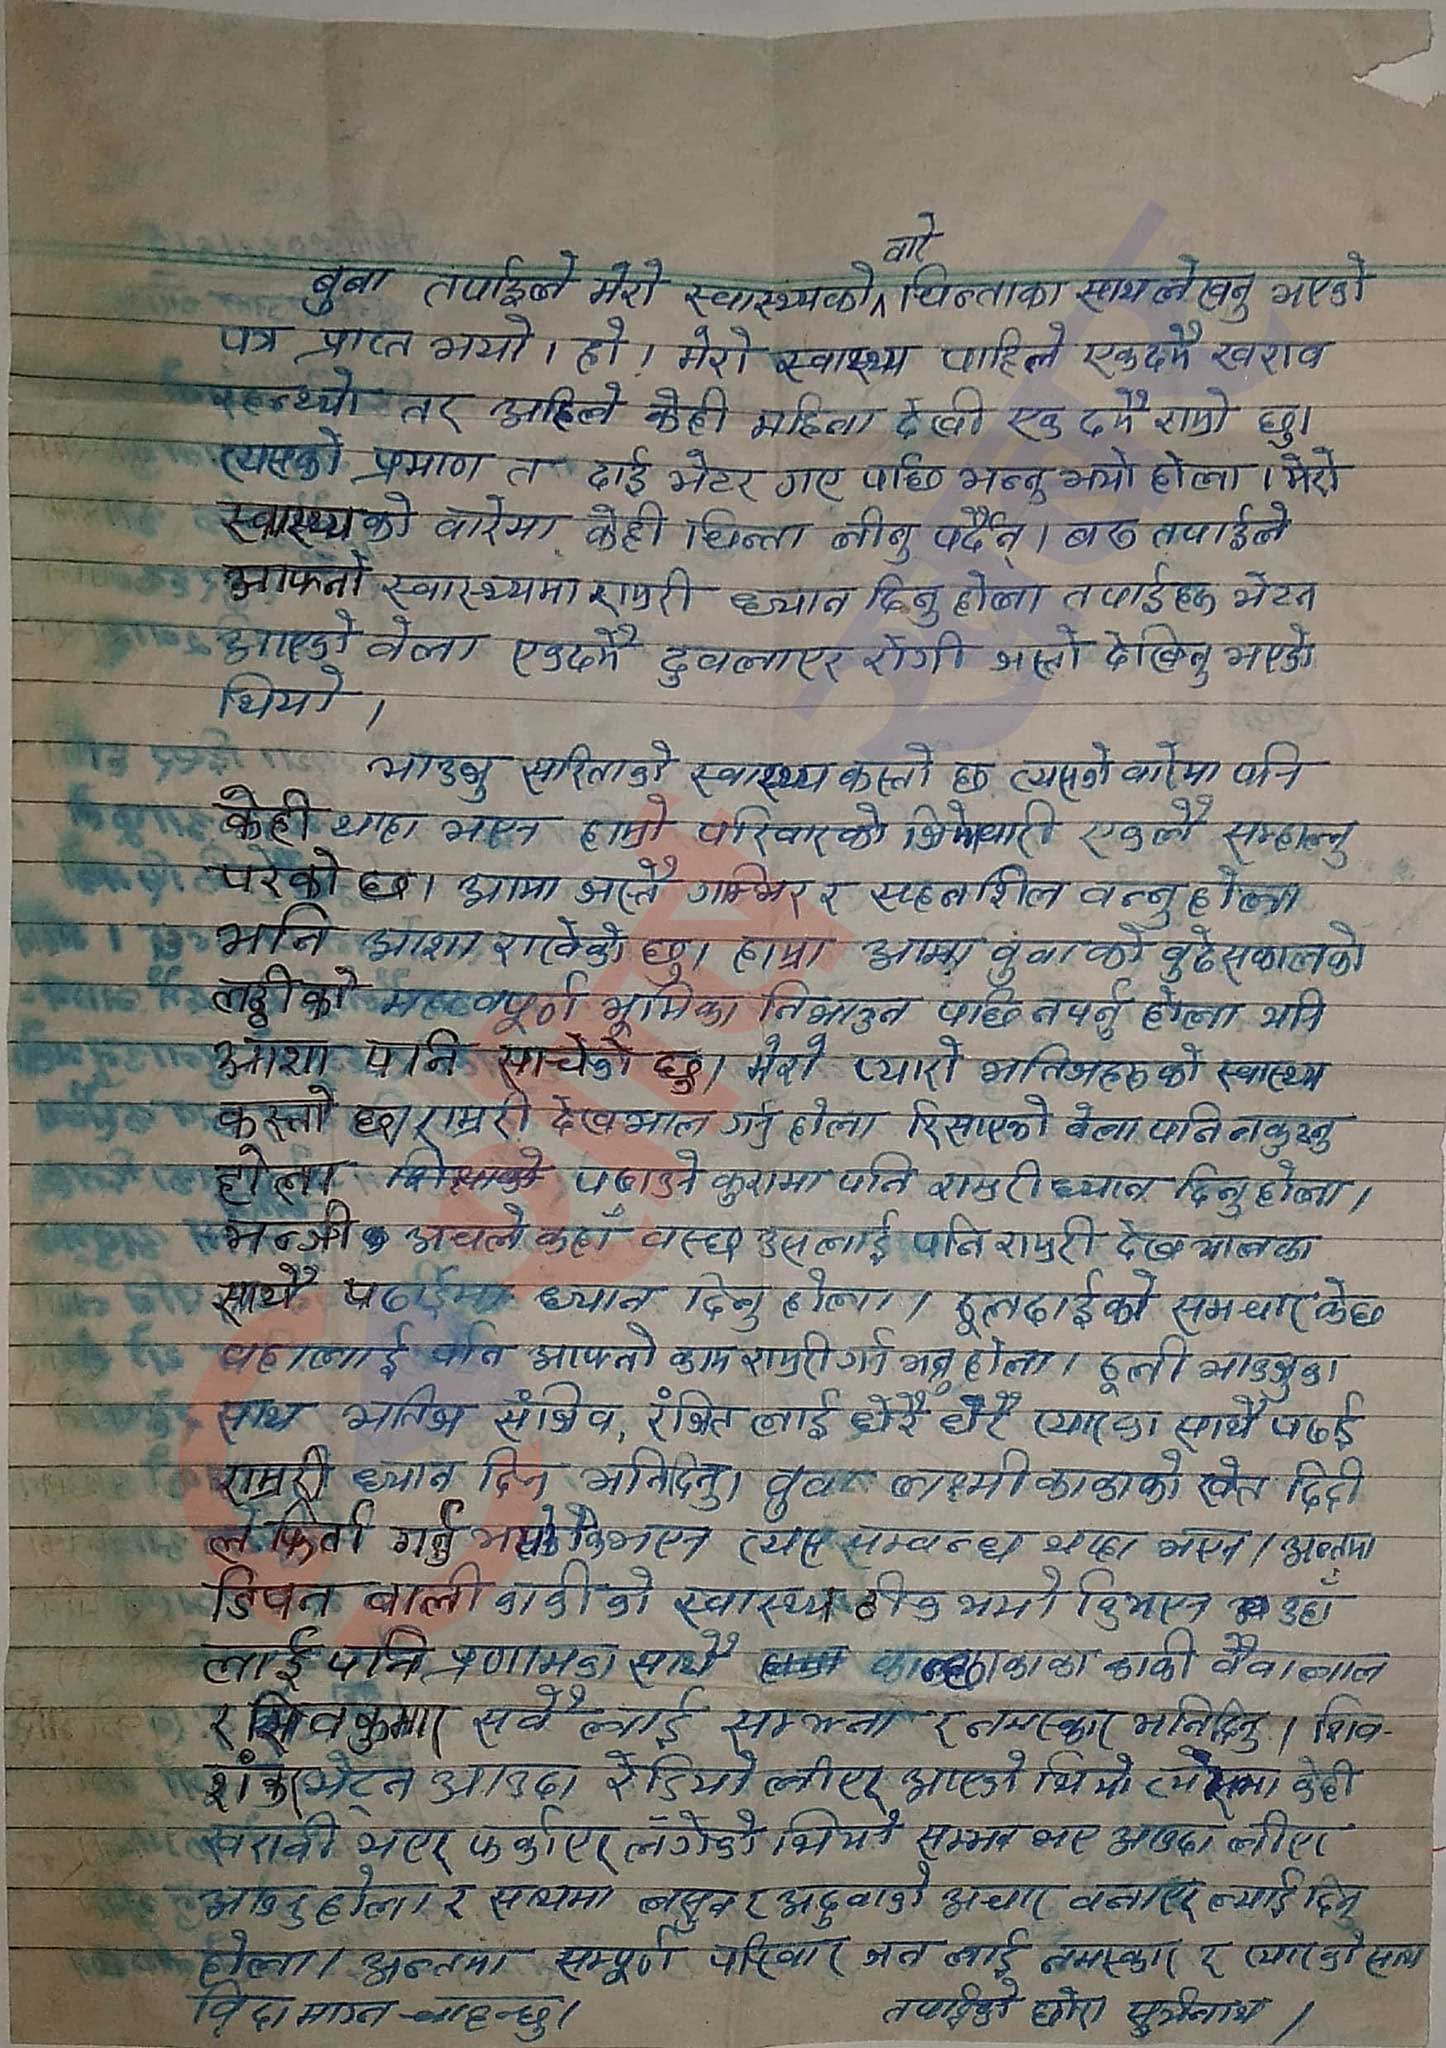 वारे
बुबा तपाईले मेरो स्वास्थ्यको ^ चिन्ताका साथ लेख्नु भएको
पत्र प्राप्त भयो। हो! मेरो स्वास्थ्य पाहिले एकदमै खराव
रहन्थ्यो तर अहिले केही महिना देखी एकदमै राम्रो छु।
त्यसको प्रमाण त दाई भेटेर गए पछि भन्नु भयो होला। मेरो
स्वास्थ्यको वारेमा केही चिन्ता लीनु पर्दैन्। बरु तपाईले
आफ्नो स्वास्थ्यमा राम्ररी ध्यान दिनु होला तपाईहरु भेट्न
आएको वेला एकदमै दुवलाएर रोगी जस्तो देखिनु भएको
थियो।
भाउजु सरिताको स्वास्थ्य कस्तो छ त्यसको वारेमा पनि
केही थाहा भएन हाम्रो परिवारको जिम्मेवारी एक्लै सम्हाल्नु
परेको छ। आमा जस्तै गम्भिर र सहनशिल वन्नु होला
भनि आशा राखेको छु। हाम्रा आमा वुवाको वुढेसकालको
लठ्ठीको महत्वपूर्ण भूमिका निभाउन पछि नपर्नु होला भनि
आशा पनि साचेको छु। मेरो प्यारो भतिजहरुको स्वास्थ्य
कस्तो छ। राम्ररी देखभाल गर्नु होला रिसाएको वेला पनि नकुट्नु
होला पढाउने कुरामा पनि राम्ररी ध्यान दिनु होला।
भन्जी अचले कहाँ वस्छ उसलाई पनि राम्ररी देखभालका
साथै पढाईमा ध्यान दिनु होला। ठूलदाईको समचार के छ
वहालाई पनि आफ्नो काम राम्ररी गर्न भन्नु होला। ठूली भाउजुका
साथ भतिज संजिव, रंजित लाई धेरै धेरै प्यारका साथै पढाई
राम्ररी ध्यान दिन भनिदिनु। वुवा लक्ष्मी काकाको खेत दिदी
ले फिर्ता गर्नु भएको कि भएन त्यस सम्वन्ध थाहा भएन। अन्तमा
डिपन वाली काकीको स्वास्थ्य ठीक भयो कि भएन उहाँ
लाई पनि प्रणामका साथै कान्छा काका काकी वैवालाल
र शिवकुमार सवै लाई सम्झना र नमस्कार भनिदिनु। शिव-
शंकर भेट्न आउदा रेडियो लीएर आएको थियो त्यसमा केही
खरावी भएर फर्काएर लगेको थियो सम्भव भए आउदा लीएर
आउनु होला र साथमा लसुन र अदुवाको अचार वनाएर ल्याई दिनु
होला। अन्तमा सम्पूर्ण परिवार जन लाई नमस्कार र प्यारको साथ
विदा माग्न चाहन्छु। तपाईको छोरा